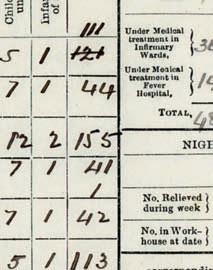 111
5 1 121
7 1 44
12 2 155
7 1 41
1
7 1 42
5 1 113
Under Medical
treatment in
Infirmary
Wards,
Under Medical
treatment in
Fever
Hospital,
TOTAL,
No. Relieved
during week
No. in Work-
house at date